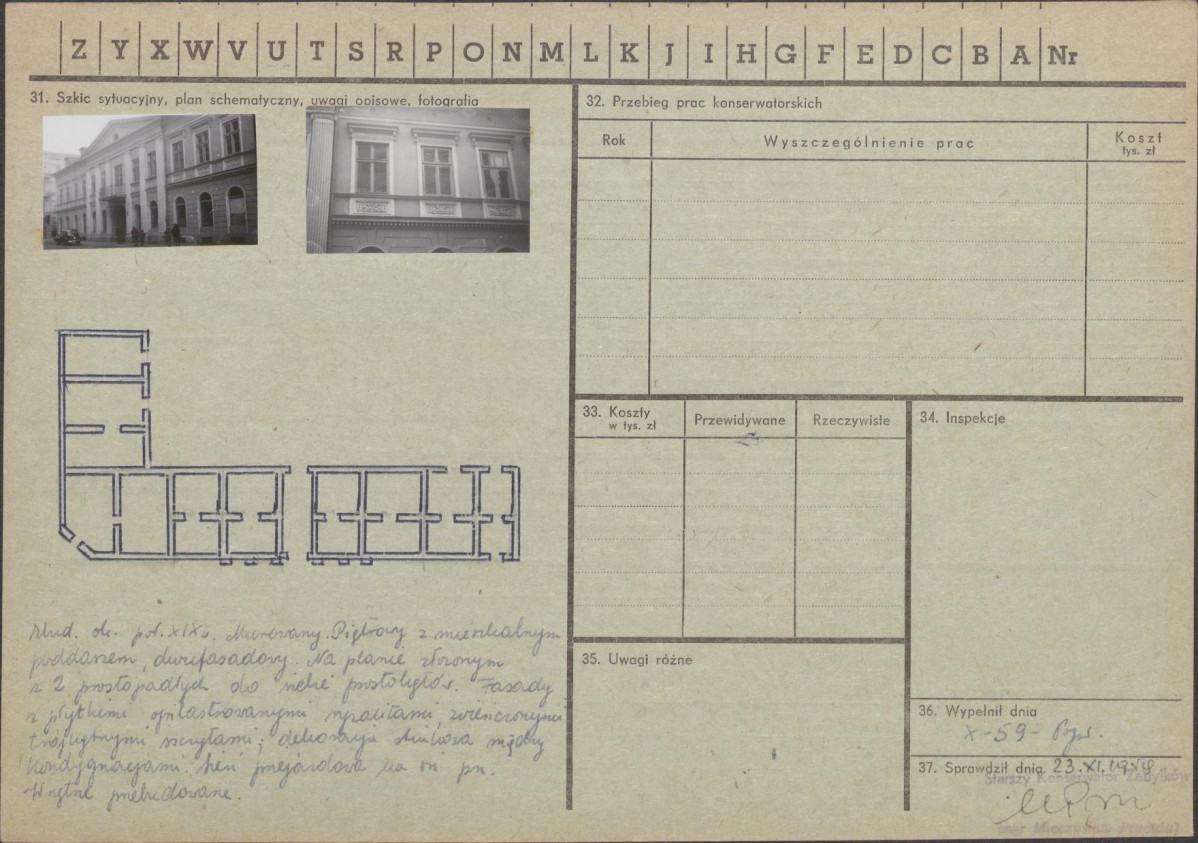 Z Y X W V U T S R P O N M L K J I H G F E D C B A Nr
31. Szkic sytuacyjny, plan schematyczny, uwagi opisowe, fotografia
Zbud. ok. poł. XIX w. Murowany. Piętrowy z mieszkalnym
poddaszem, dwufasadowy. Na planie złożonym
z 2 prostopadłych do siebie prostokątów. Fasady
z płytkimi opilastrowanymi ryzalitami, zwieńczonymi
trójkątnymi szczytami; dekoracja stiukowa między
kondygnacjami. Sień przejazdowa na osi pn.
Wnętrze przebudowane.
32. Przebieg prac konserwatorskich
Rok Wyszczególnienie prac Koszt
tys. zł
33. Koszty
w tys. zł
Przewidywane Rzeczywiste
34. Inspekcje
35. Uwagi różne
36. Wypełnił dnia
X-59-
37. Sprawdził dnia 23.XI.1959
Starszy Konserwator Zabytków
mgr Mieczysław